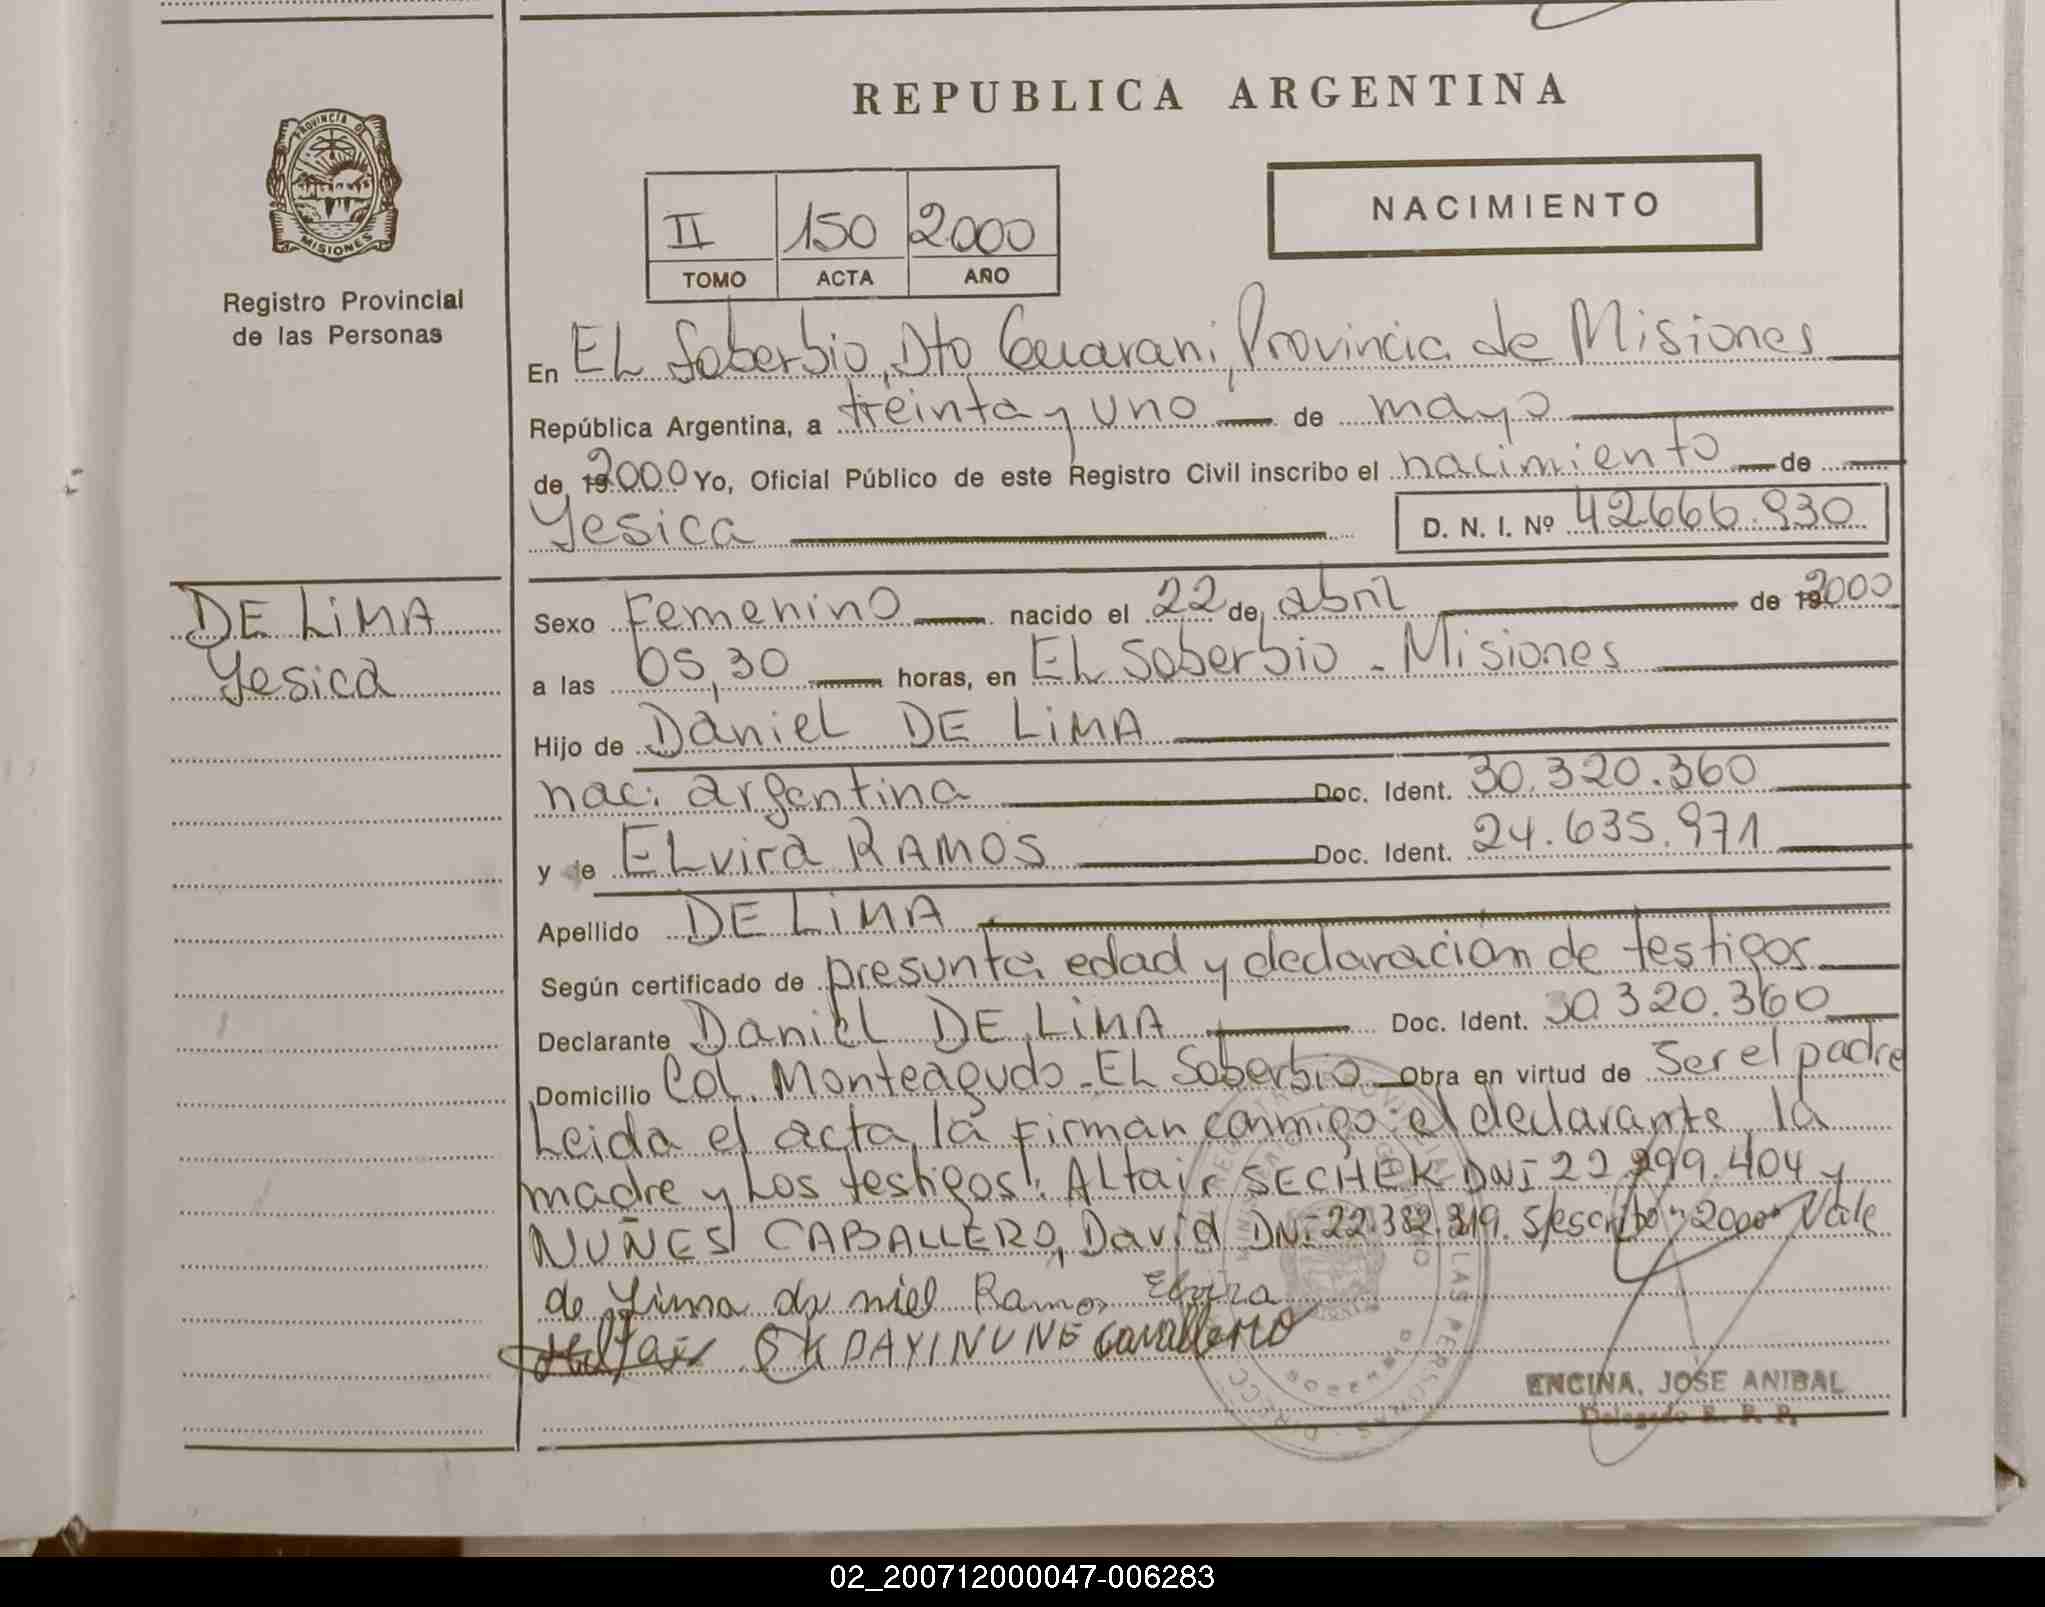 REPUBLICA ARGENTINA
PROVINCIA DE
MISIONES
Registro Provincial
de las Personas
NACIMIENTO
II 150 2000
TOMO ACTA AÑO
En EL Soberbio, Dto Guarani, Provincia de Misiones
República Argentina, a treinta y uno de mayo
de 192000 Yo, Oficial Público de este Registro Civil inscribo el nacimiento de
Yesica D. N. I. Nº 42666.930
DE LIMA
Yesica
Sexo Femenino nacido el 22 de abril de 192000
a las 05,30 horas, en EL Soberbio - Misiones
Hijo de Daniel DE LIMA
nac. argentina Doc. Ident. 30.320.360
y de ELvira RAMOS Doc. Ident. 24.635.971
Apellido DE LIMA
Según certificado de presunta edad y declaración de testigos
Declarante Daniel DE LIMA Doc. Ident. 30.320.360
Domicilio Col. Monteagudo - EL Soberbio Obra en virtud de ser el padre
Leida el acta, la firman conmigo el declarante, la
madre y Los testigos: Altair SECHEK DNI 22.299.404 y
NUÑES CABALLERO, David DNI 22.382.319. S/escribo "2000" Vale
de Lima da niel Ramos Elvira
DAYI NUNE Cavallero
ENCINA, JOSE ANIBAL
Delegado R. P. P.
02_200712000047-006283